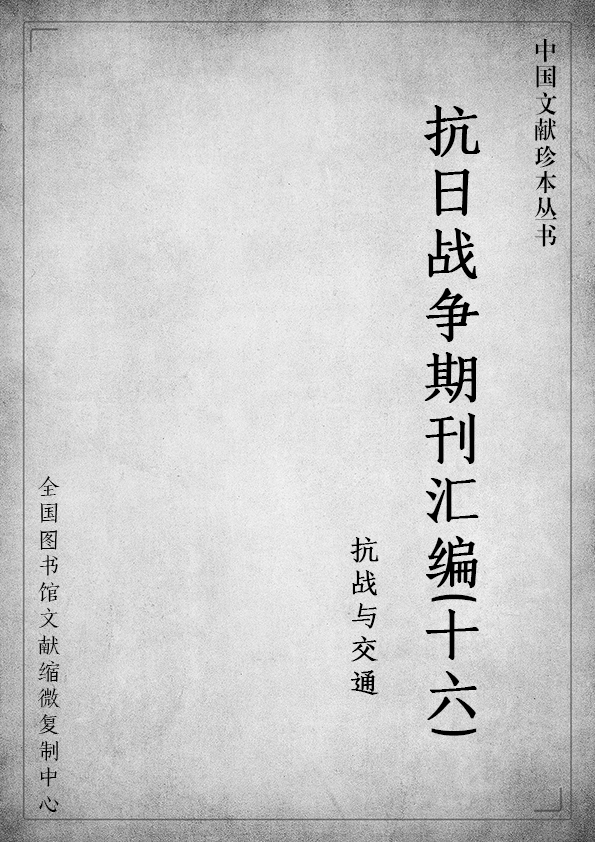 中国文献珍本丛书
抗日战争期刊汇编(十六)
抗战与交通
全国图书馆文献缩微复制中心